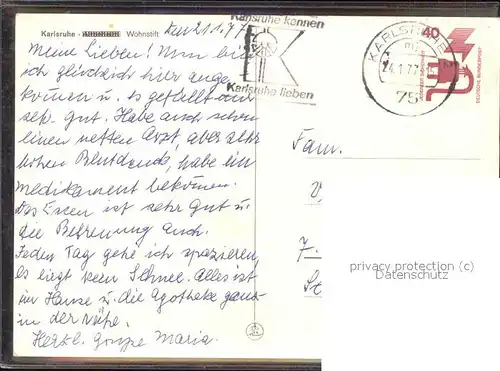 Karlsruhe - Wohnstift
Karlsruhe können
Karlsruhe lieben
KARLSRUHE
24.1.77
75
40
DEUTSCHE BUNDESPOST
Meine Lieben! Nun bin
ich glücklich hier ange-
kommen u. es gefällt mir
sehr gut. Habe auch schon
einen netten Arzt, aber
hohen Blutdruck, habe ein
Medikament bekommen.
Das Essen ist sehr gut u.
die Betreuung auch.
Jeden Tag gehe ich spazieren,
es liegt kein Schnee. Alles ist
im Hause u. die Apotheke ganz
in der Nähe.
Herzl. Grüße Maria
Fam.
7.
privacy protection (c)
Datenschutz